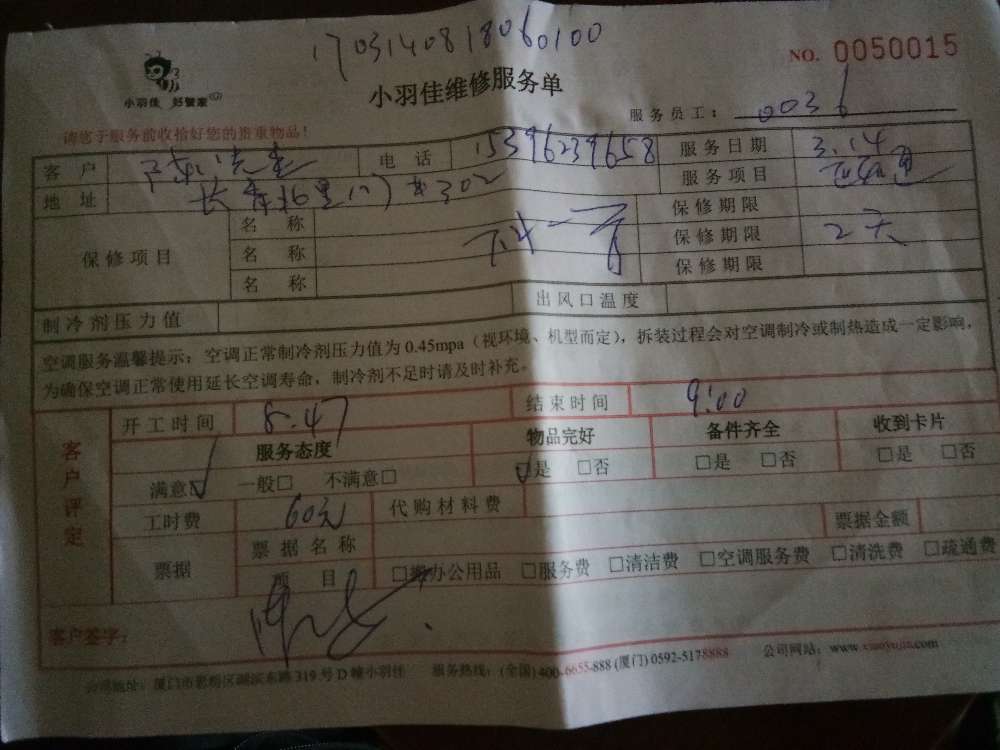 1703140818060100
NO. 0050015
小羽佳 好管家
小羽佳维修服务单
服务员工： 0036
请您于服务前收拾好您的贵重物品！
客户 陈先生 电话 15396239658 服务日期 3.14
地址 302 服务项目
保修项目 名称 保修期限
名称 保修期限 2天
名称 保修期限
制冷剂压力值 出风口温度
空调服务温馨提示：空调正常制冷剂压力值为0.45mpa（视环境、机型而定），拆装过程会对空调制冷或制热造成一定影响，
为确保空调正常使用延长空调寿命，制冷剂不足时请及时补充。
客户评定
开工时间 8:47 结束时间 9:00
服务态度 物品完好 备件齐全 收到卡片
满意☑ 一般□ 不满意□ ☑是 □否 □是 □否 □是 □否
工时费 60元 代购材料费 票据金额
票据 票据名称
项目 □办公用品 □服务费 □清洁费 □空调服务费 □清洗费 □疏通费
客户签字：
公司地址：厦门市思明区湖滨东路319号D幢小羽佳 服务热线：(全国)400-6655-888 (厦门) 0592-5178888 公司网站：www.xiaoyujia.com